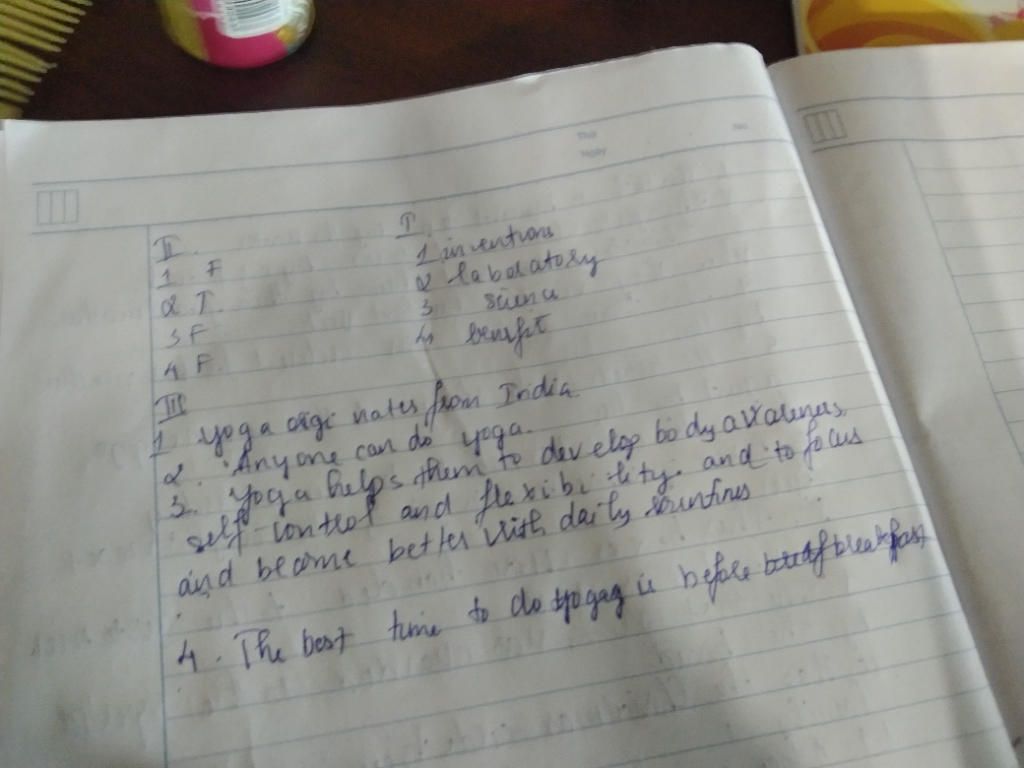 Thứ
No.
Ngày
II.
1. F
2 T.
3 F
4 F.
I
1 inventions
2 laboratory
3 science
4 benefit
III
1 yoga origi nates from India
2. Anyone can do yoga.
3. Yoga helps them to develop body awareness
self-control and flexibi lity. and to focus
and become better with daily routines
4. The best time to do yoga is before breakfast